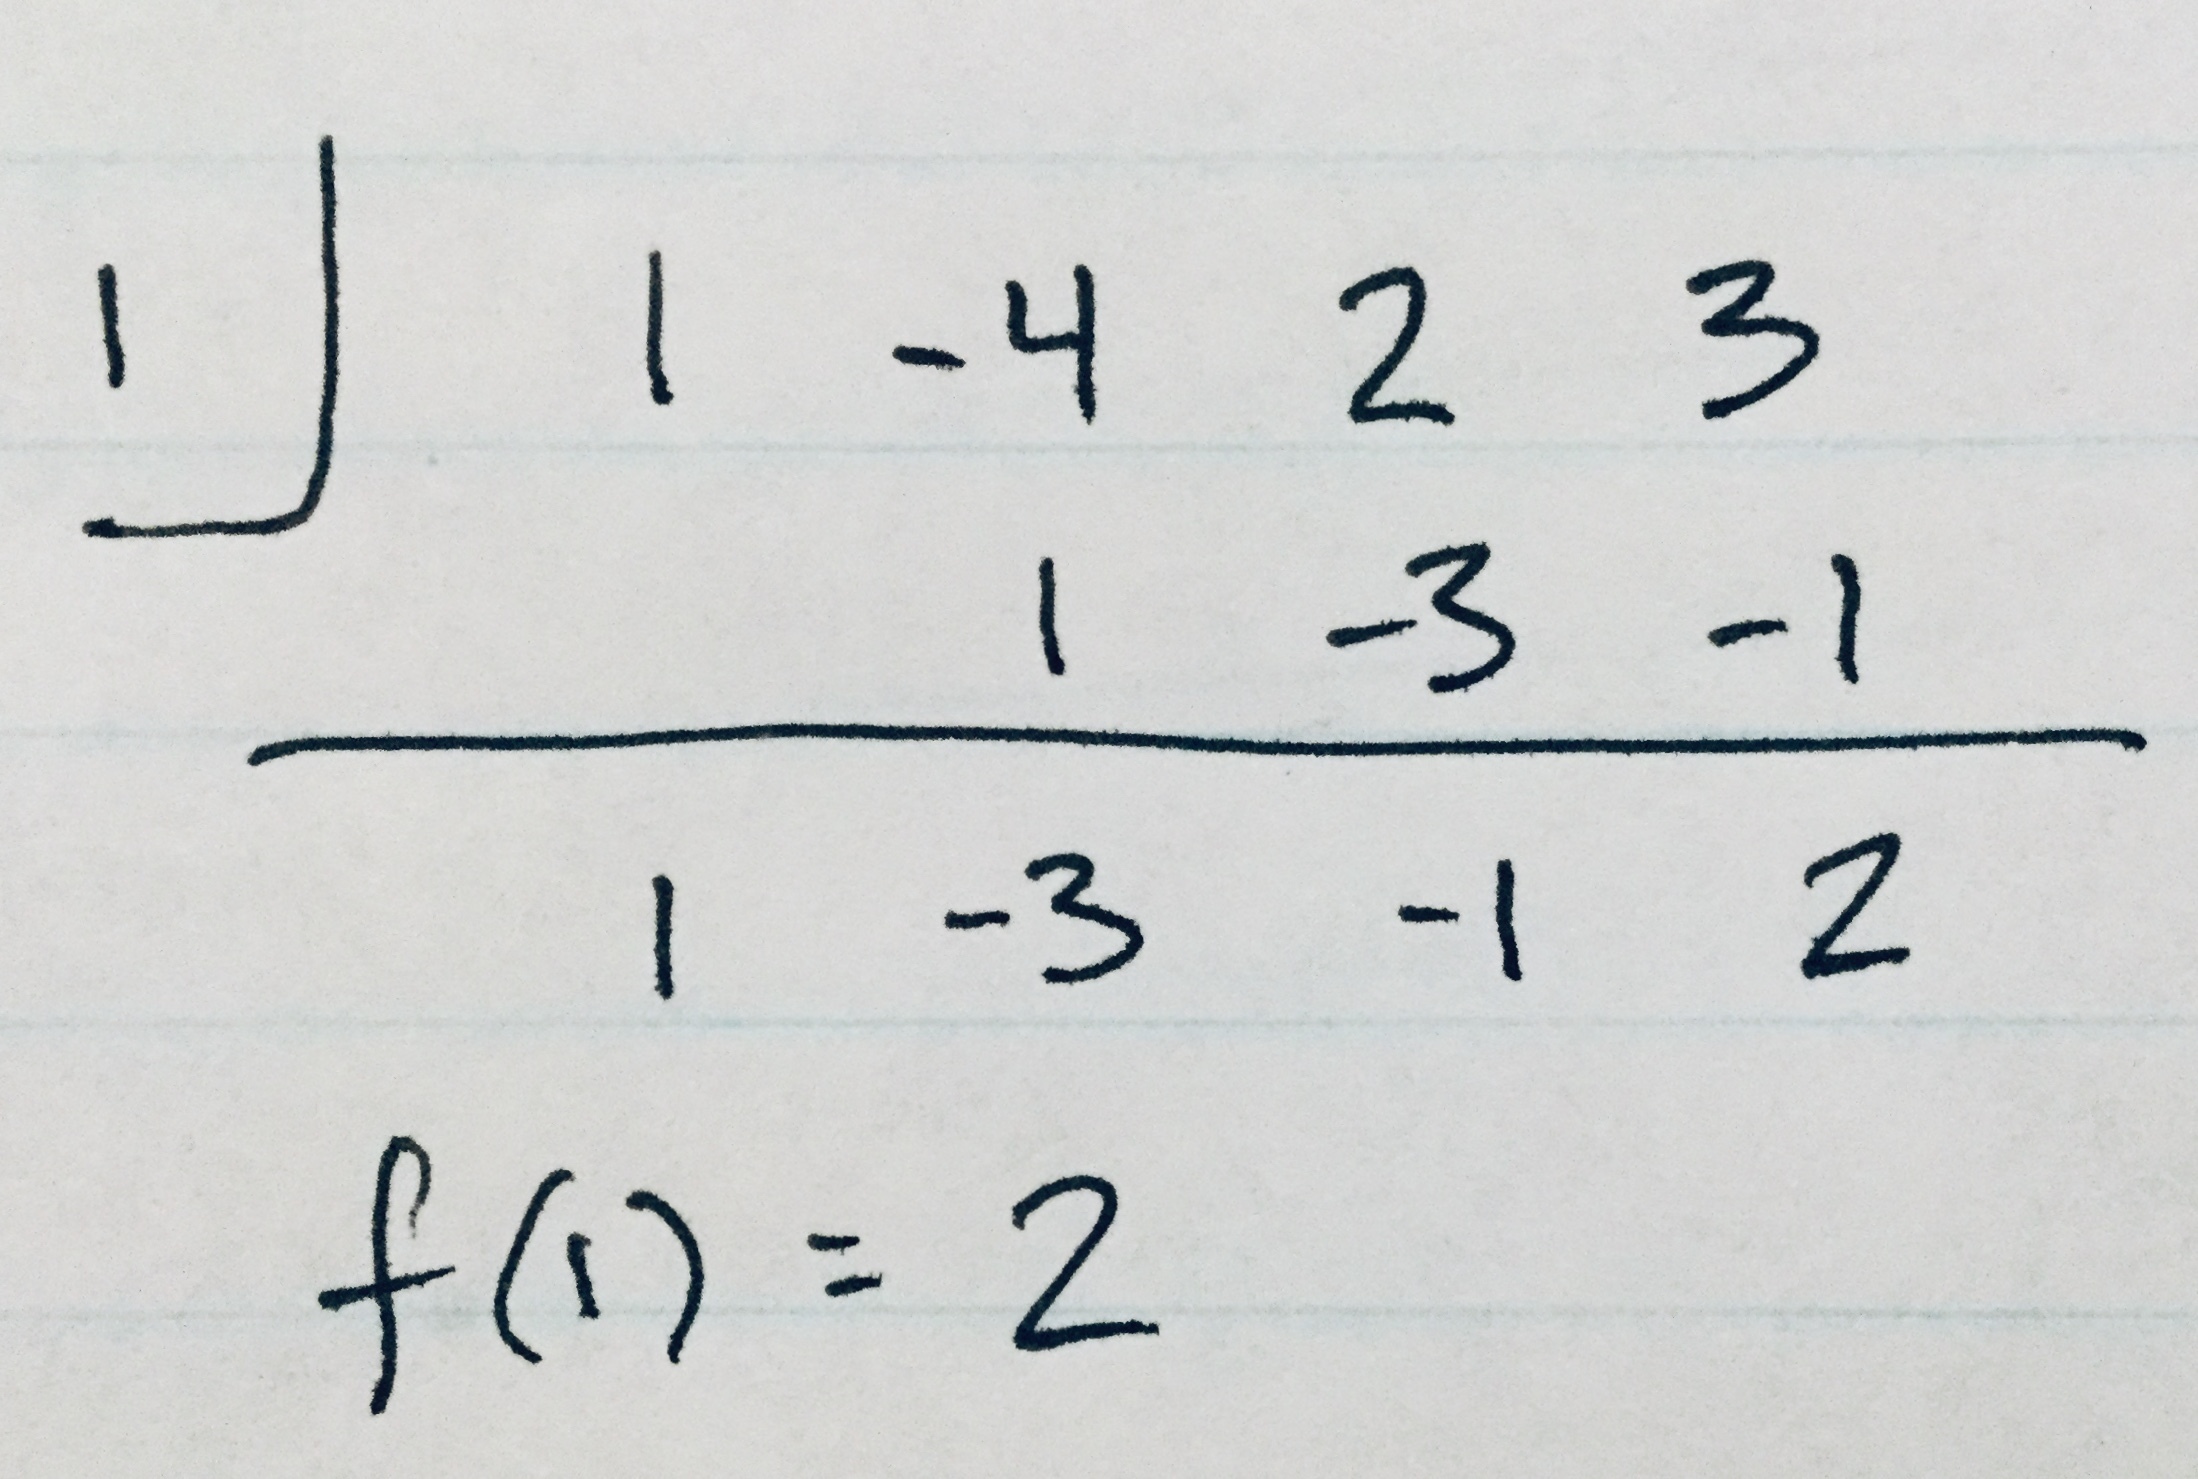 1 1 -4 2 3
1 -3 -1
1 -3 -1 2
f(1) = 2